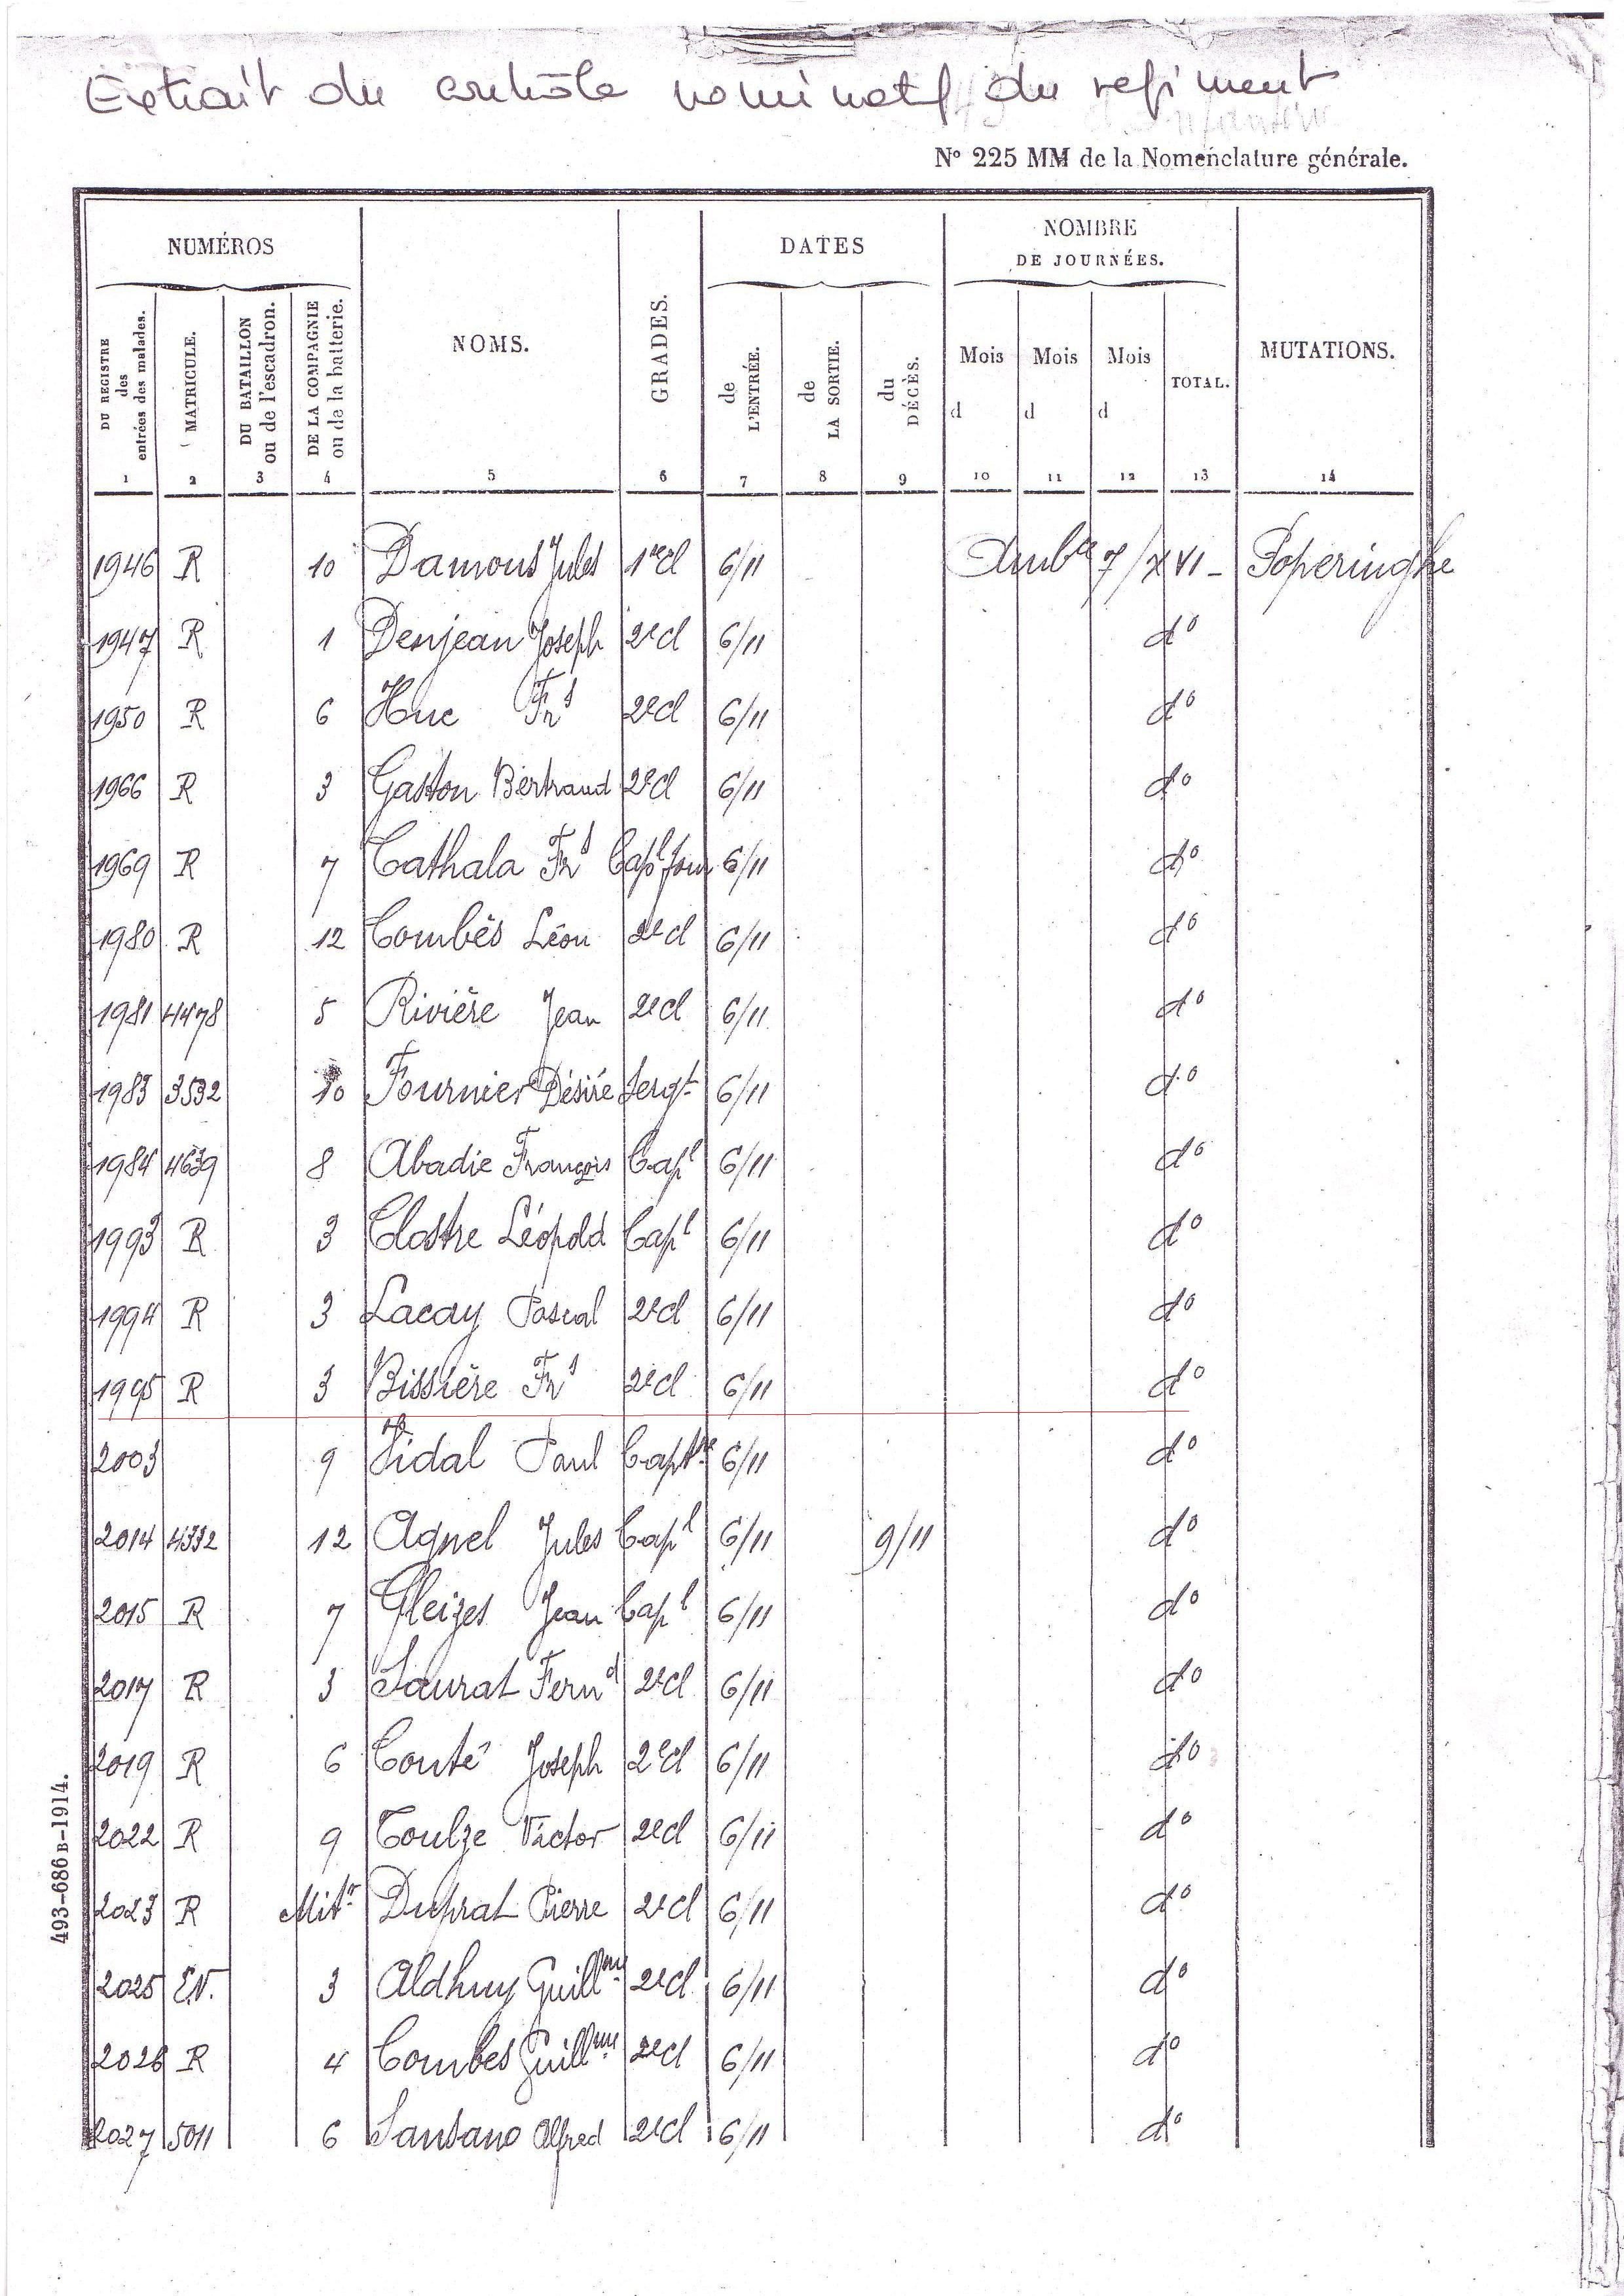 Extrait du contrôle nominatif du regiment
d'Infanterie
N° 225 MM de la Nomenclature générale.
NUMÉROS
DU REGISTRE des entrées des malades.
MATRICULE.
DU BATAILLON ou de l'escadron.
DE LA COMPAGNIE ou de la batterie.
NOMS.
GRADES.
DATES
de L'ENTRÉE.
de LA SORTIE.
du DÉCÈS.
NOMBRE
DE JOURNÉES.
Mois d
Mois d
Mois d
TOTAL.
MUTATIONS.
1 2 3 4 5 6 7 8 9 10 11 12 13 14
1946 R 10 Damous Jules 1ecl 6/11 Ambce 7/XVI - Poperinghe
1947 R 1 Denjean Joseph 2ecl 6/11 do
1950 R 6 Huc Frs 2ecl 6/11 do
1966 R 3 Gaston Bertrand 2ecl 6/11 do
1969 R 7 Cathala Frs Capl four 6/11 do
1980 R 12 Combès Léon 2ecl 6/11 do
1981 4478 5 Rivière Jean 2ecl 6/11 do
1983 3532 10 Fournier Désiré Sergt 6/11 do
1984 4639 8 Abadie François Capl 6/11 do
1993 R 3 Clostre Léopold Capl 6/11 do
1994 R 3 Lacay Pascal 2ecl 6/11 do
1995 R 3 Bissière Frs 2ecl 6/11 do
2003 9 Vidal Paul Captne 6/11 do
2014 4332 12 Agnel Jules Capl 6/11 9/11 do
2015 R 7 Gleizes Jean Capl 6/11 do
2017 R 3 Saurat Fernd 2ecl 6/11 do
2019 R 6 Couté Joseph 2ecl 6/11 do
2022 R 9 Toulze Victor 2ecl 6/11 do
2023 R Mitr Duprat Pierre 2ecl 6/11 do
2025 E.V. 3 Aldhuy Guillme 2ecl 6/11 do
2026 R 4 Combes Guillme 2ecl 6/11 do
2027 5011 6 Sansano Alfred 2ecl 6/11 do
493-686 B-1914.